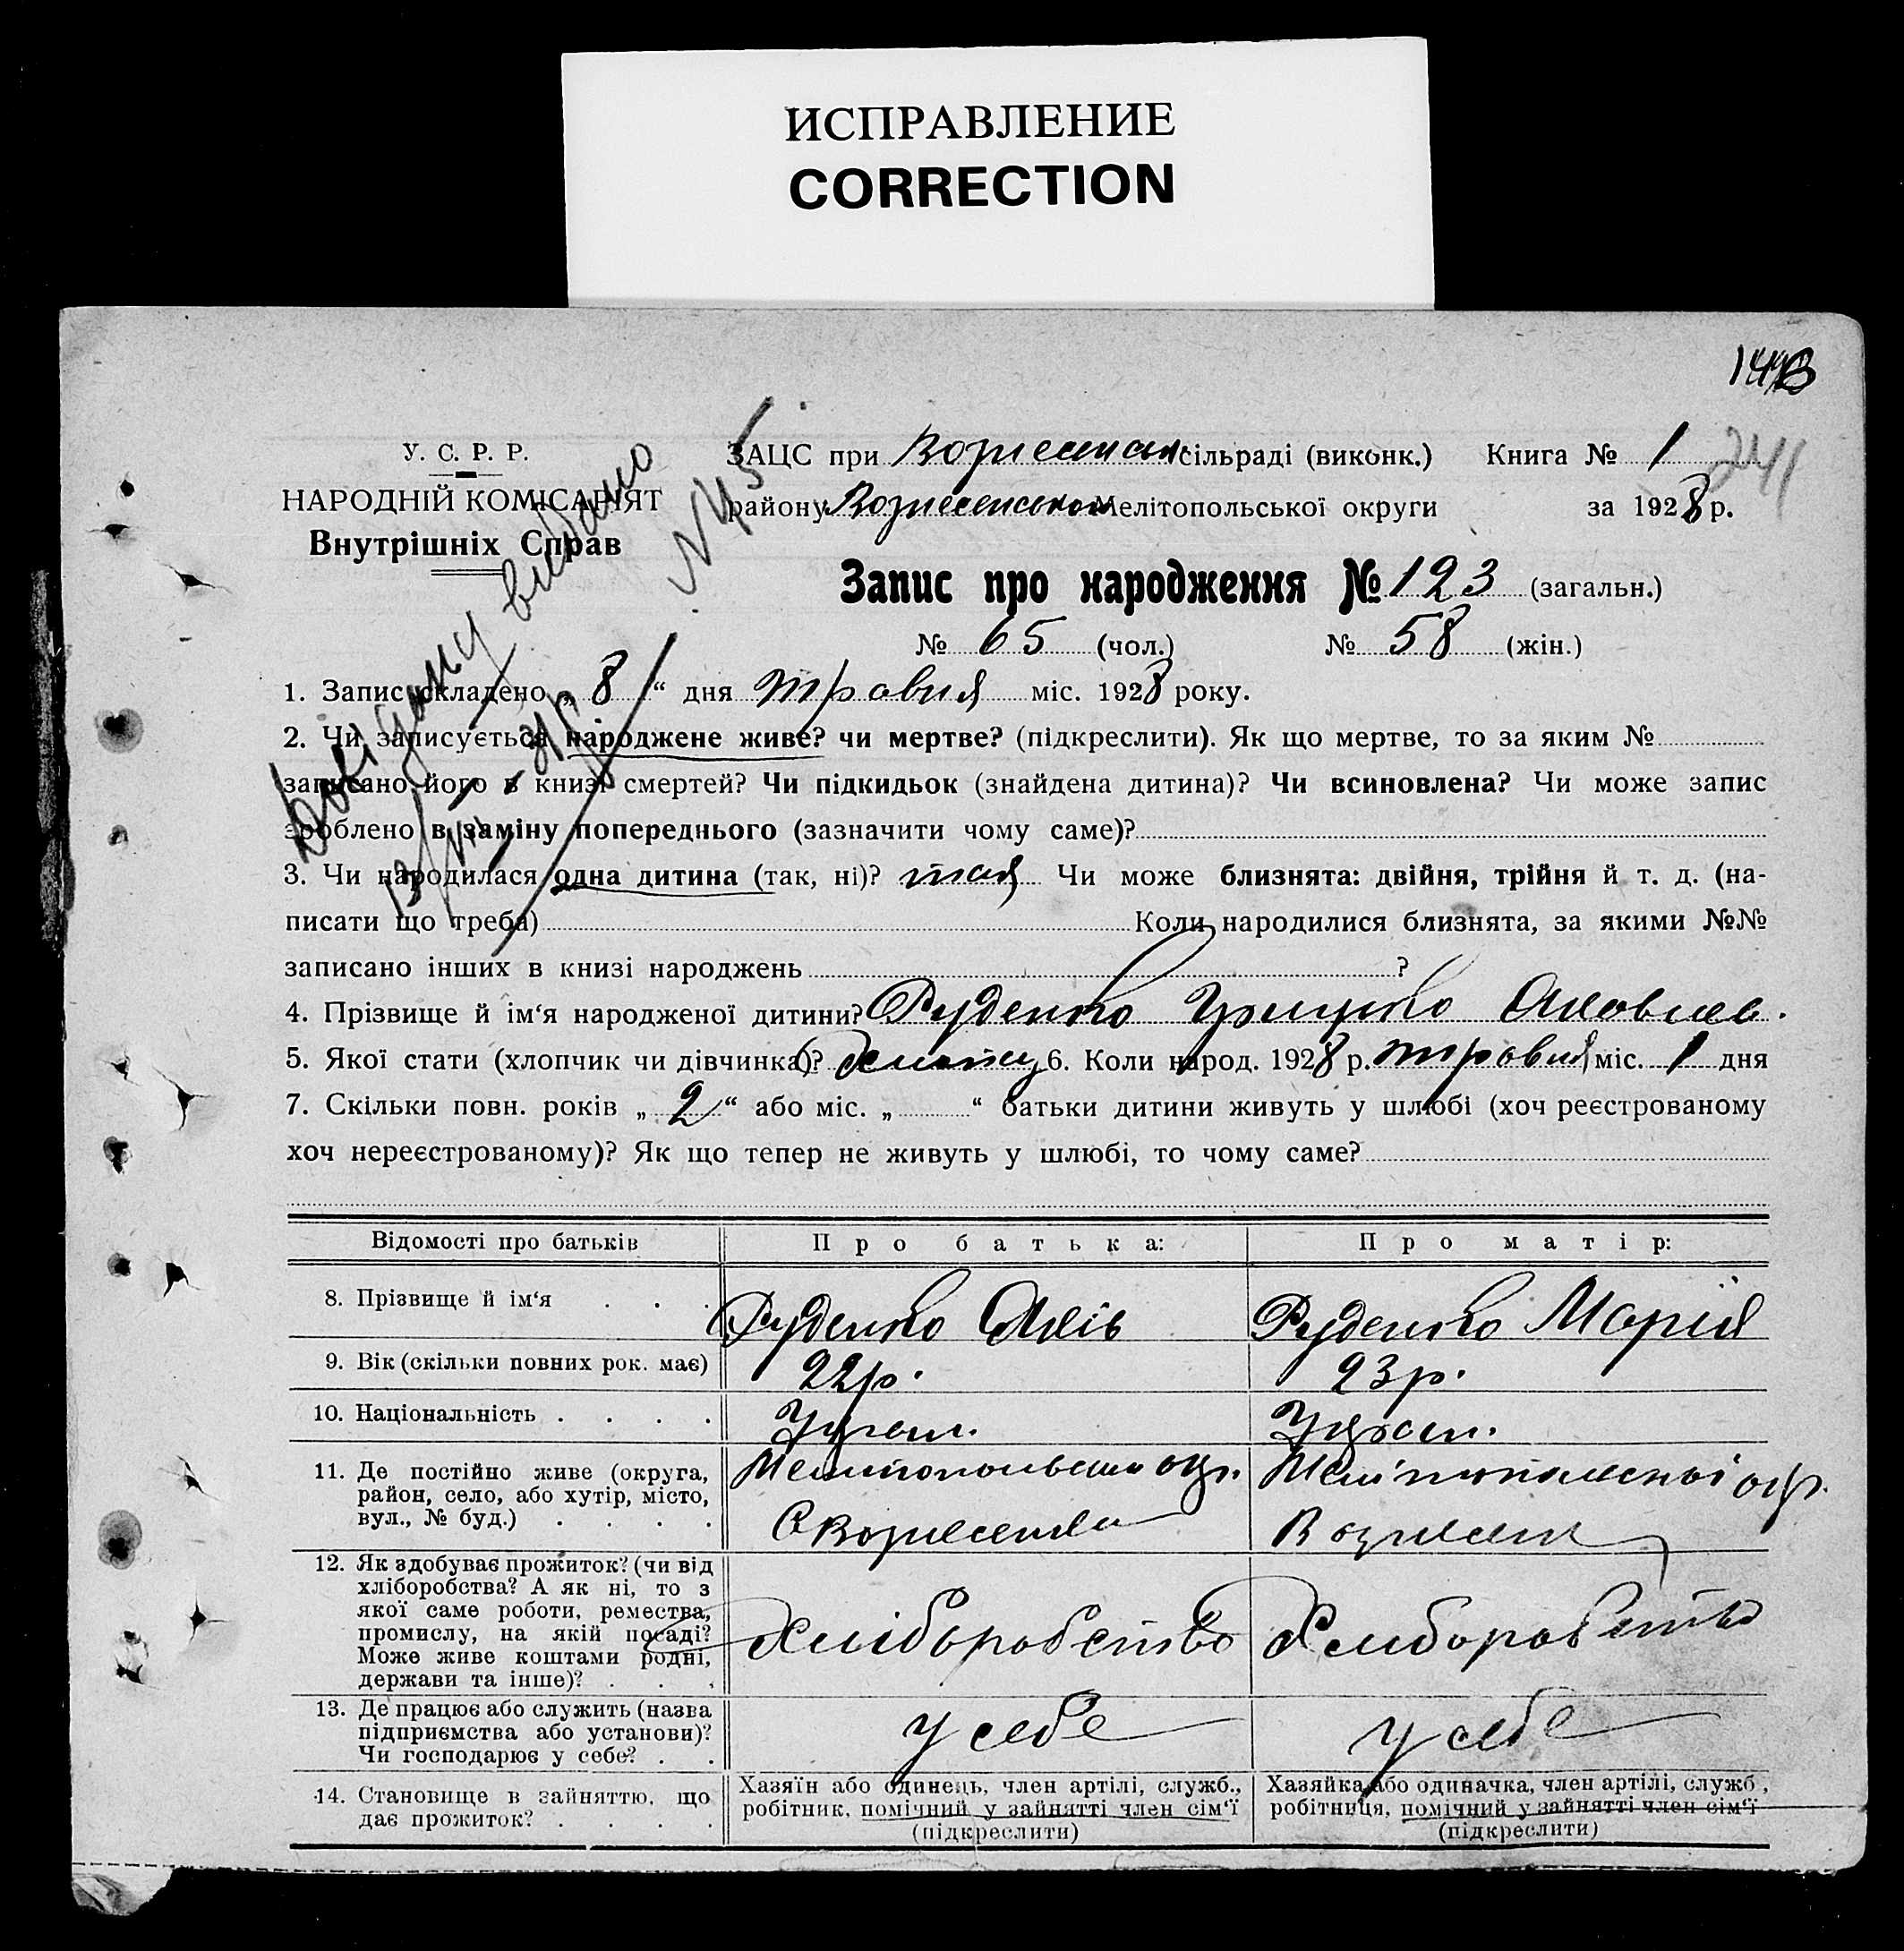 ИСПРАВЛЕНИЕ
CORRECTION
У. С. Р. Р.
НАРОДНІЙ КОМІСАРІЯТ
Внутрішніх Справ
Довідану видано
N 45
ЗАЦС при Вознесенськ сільраді (виконк.) Книга № 1
241
району Вознесенсько Мелітопольської округи за 1928 р.
Запис про народження № 123 (загальн.)
№ 65 (чол.) № 58 (жін.)
1. Запис складено „ 8 “ дня травня міс. 1928 року.
2. Чи записується народжене живе? чи мертве? (підкреслити). Як що мертве, то за яким №
записано його в книзі смертей? Чи підкидьок (знайдена дитина)? Чи всиновлена? Чи може запис
зроблено в заміну попереднього (зазначити чому саме)?
3. Чи народилася одна дитина (так, ні)? так Чи може близнята: двійня, трійня й т. д. (на-
писати що треба) Коли народилися близнята, за якими №№
записано інших в книзі народжень ?
4. Прізвище й ім‘я народженої дитини? Руденко Грицько Яковлев.
5. Якої стати (хлопчик чи дівчинка)? Хлопец 6. Коли народ. 1928 р. травня міс. 1 дня
7. Скільки повн. років „ 2 “ або міс. „ “ батьки дитини живуть у шлюбі (хоч реєстрованому
хоч нереєстрованому)? Як що тепер не живуть у шлюбі, то чому саме?
Відомості про батьків Про батька: Про матір:
8. Прізвище й ім‘я . . . Руденко Яків Руденко Марія
9. Вік (скільки повних рок. має) 22 р. 23 р.
10. Національність . . . . Украл. Украл.
11. Де постійно живе (округа,
район, село, або хутір, місто,
вул., № буд.) . . . .
Мелітопольськи окр. Мелітопольскої окр.
С Вознесенка Вознесен
12. Як здобуває прожиток? (чи від
хліборобства? А як ні, то з
якої саме роботи, ремества,
промислу, на якій посаді?
Може живе коштами родні,
держави та інше)? . . .
Хліборобство Хлиборобство
13. Де працює або служить (назва
підприємства або установи)?
Чи господарює у себе? . .
у себе у себе
14. Становище в зайняттю, що
дає прожиток? . . . .
Хазяїн або одинець, член артілі, служб.,
робітник, помічний у зайнятті член сім‘ї
(підкреслити)
Хазяйка або одиначка, член артілі, служб.,
робітниця, помічний у зайнятті член сім‘ї
(підкреслити)